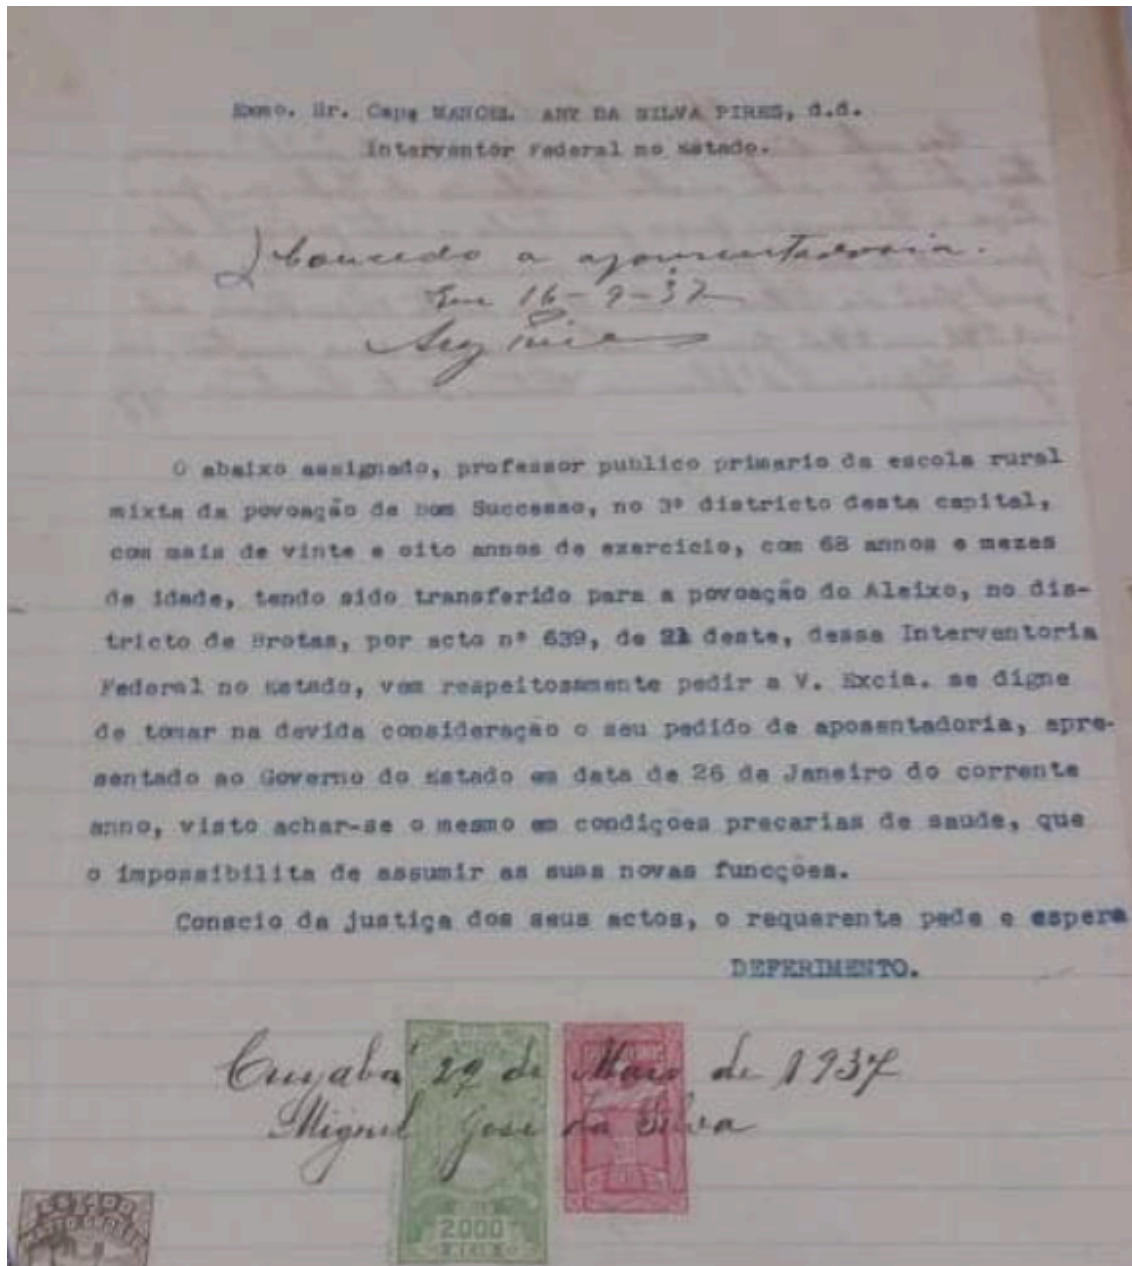 Exmo. Sr. Capm MANOEL ARY DA SILVA PIRES, d.d.
Interventor Federal no Estado.
Concedo a aposentadoria.
Em 16-9-37
Ary Pires
O abaixo assignado, professor publico primario da escola rural
mixta da povoação de Bom Successo, no 3º districto desta capital,
com mais de vinte e oito annos de exercicio, com 68 annos e mezes
de idade, tendo sido transferido para a povoação do Aleixo, no dis-
tricto de Brotas, por acto nº 639, de 21 deste, dessa Interventoria
Federal no Estado, vem respeitosamente pedir a V. Excia. se digne
de tomar na devida consideração o seu pedido de aposentadoria, apre-
sentado ao Governo do Estado em data de 26 de Janeiro do corrente
anno, visto achar-se o mesmo em condições precarias de saude, que
o impossibilita de assumir as suas novas funcções.
Conscio da justiça dos seus actos, o requerente pede e espera
DEFERIMENTO.
Cuyabá 29 de Maio de 1937
Miguel José da Silva
2000
RÉIS